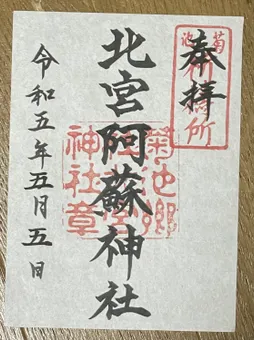 奉拝
北宮阿蘇神社
令和五年五月五日